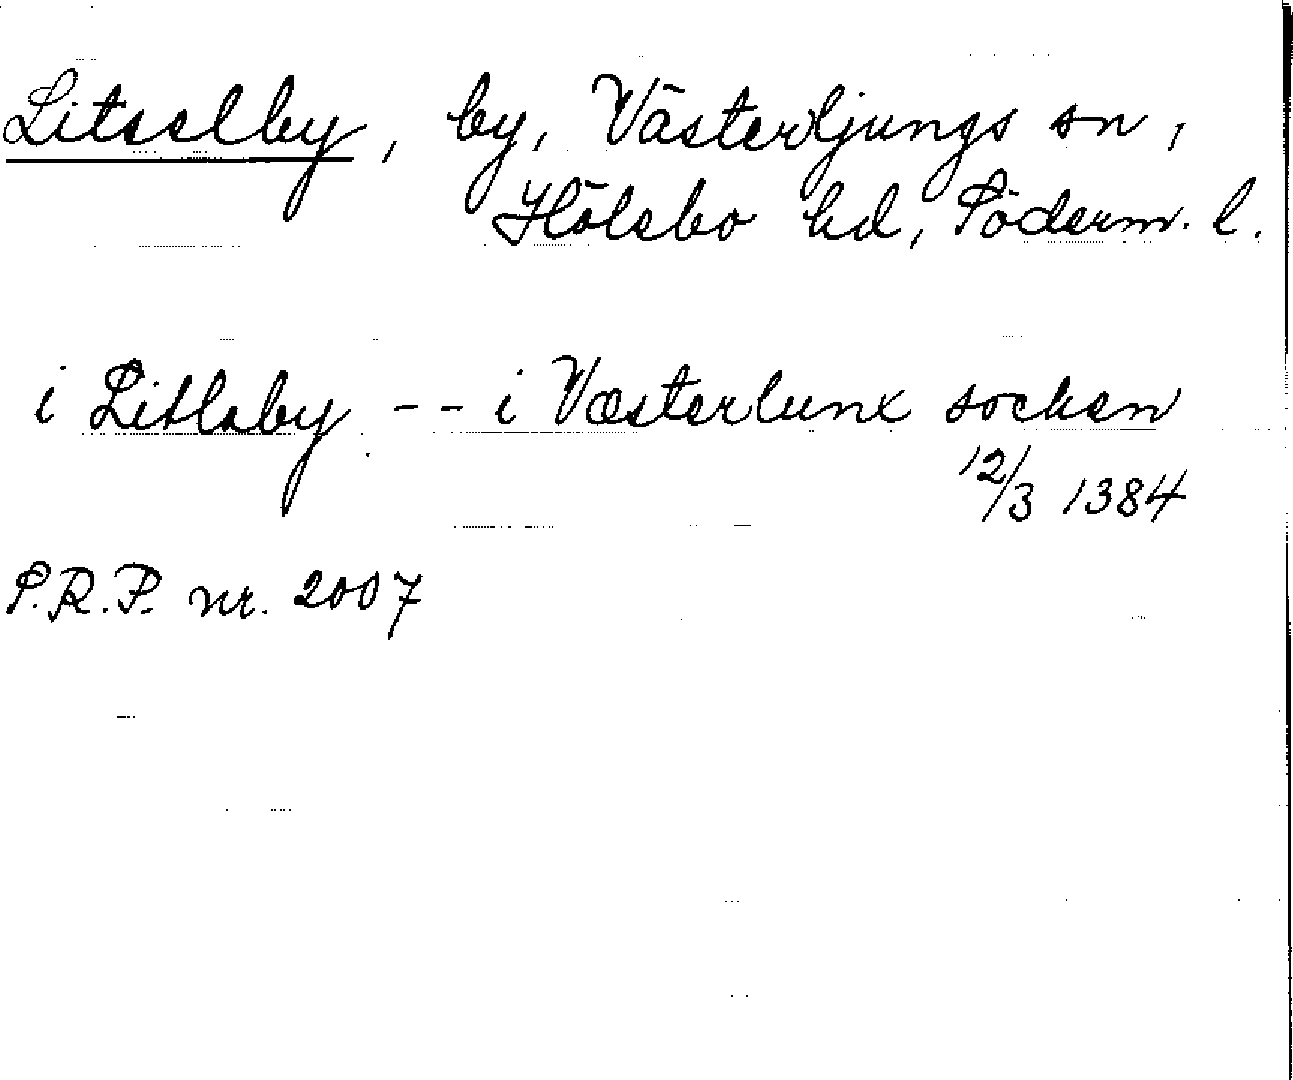 Litselby, by, Västerljungs sn,
Hölebo hd, Söderm. l.
i Litlaby -- i Væsterlunx socken
12/3 1384
S.R.P. nr. 2007